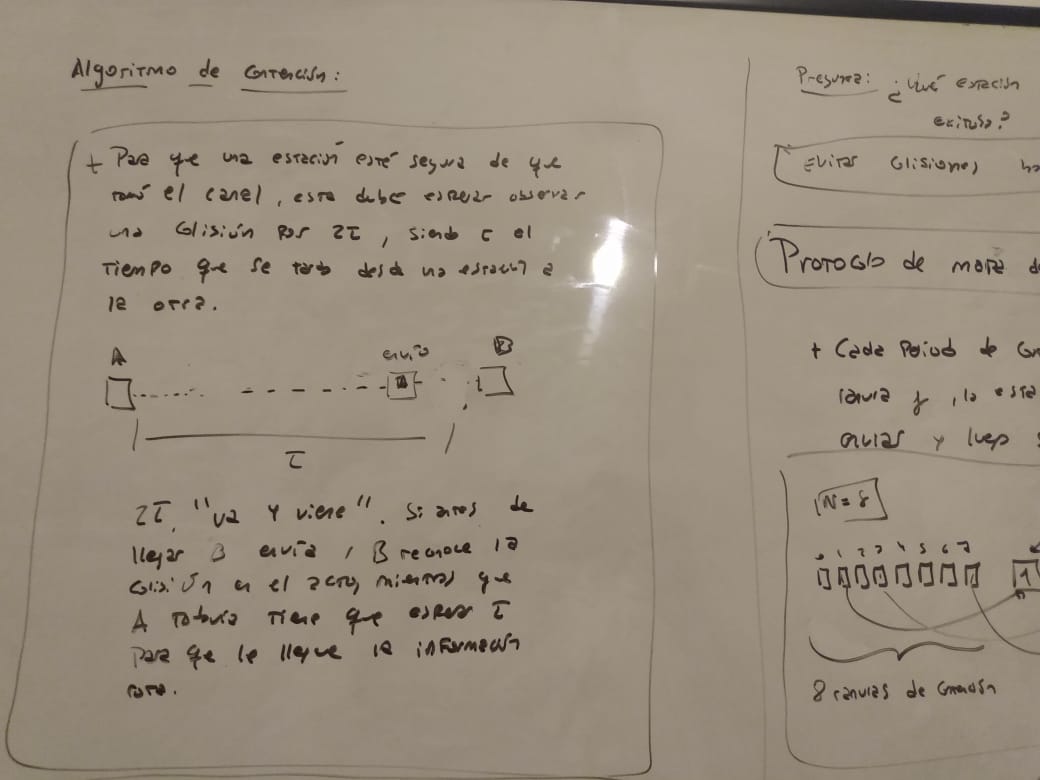 Algoritmo de Contención:
+ Para que una estación esté segura de que
tomó el canal, esta debe esperar observar
una colisión por 2τ, siendo τ el
tiempo que se tarda desde una estación a
la otra.
A
envío
B
τ
2τ, "va y viene". Si antes de
llegar B envía, B reconoce la
colisión en el acto, mientras que
A todavía tiene que esperar τ
para que le llegue la información
rota.
Pregunta: ¿Qué estación
exitosa?
Evitar colisiones
Protocolo de mapa de
+ Cada Periodo de
ranura j, la esta
enviar y luego
N = 8
0 1 2 3 4 5 6 7
1
8 ranuras de contención